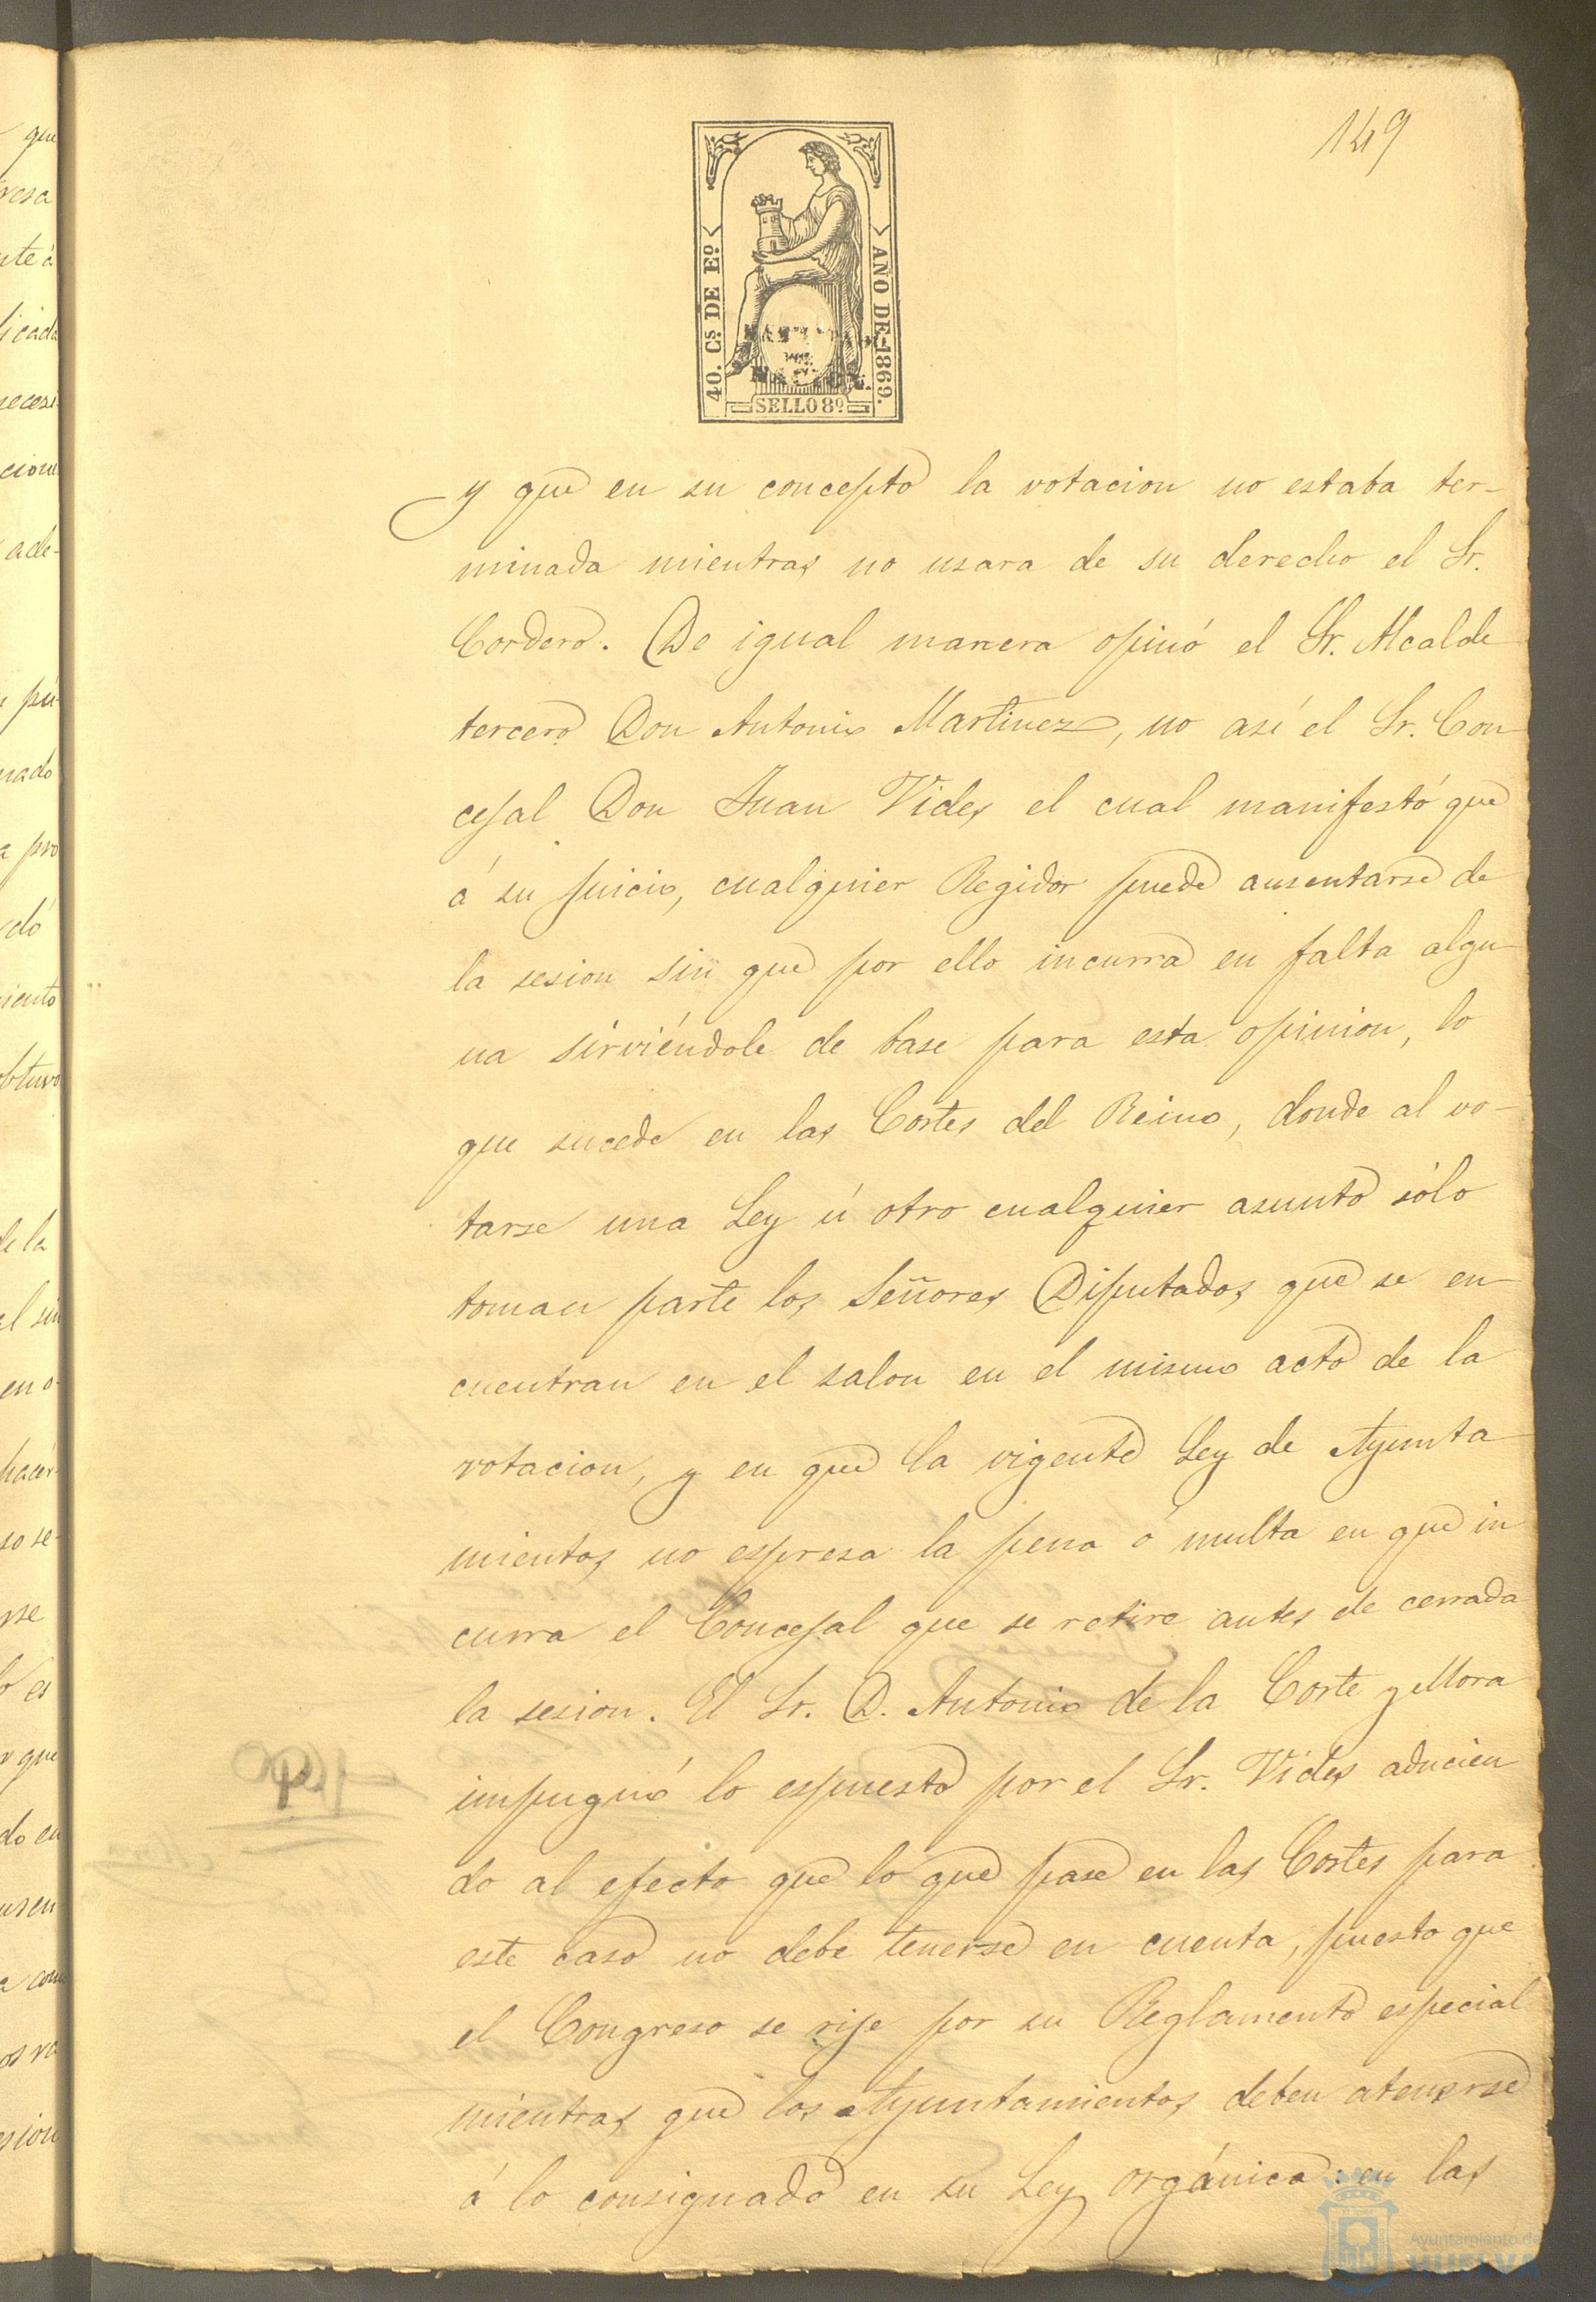 149
40. Cs DE Eo.
AÑO DE 1869.
SELLO 8º
y que en su concepto la votacion no estaba ter-
minada mientras no usara de su derecho el Sr.
Cordero. De igual manera opinó el Sr. Alcalde
tercero Don Antonio Martinez, no asi el Sr. Con
cejal Don Juan Vides el cual manifestó que
á su juicio, cualquier Regidor puede ausentarse de
la sesion sin que por ello incurra en falta algu
na sirviéndole de base para esta opinion, lo
que sucede en las Cortes del Reino, donde al vo-
tarse una Ley ú otro cualquier asunto sólo
toman parte los Señores Diputados que se en
cuentran en el salon en el mismo acto de la
votacion, y en que la vigente Ley de Ayunta
mientos no espresa la pena ó multa en que in
curra el Concejal que se retire antes de cerrada
la sesion. El Sr. D. Antonio de la Corte y Mora
impugnó lo espuesto por el Sr. Vides aducien
do al efecto que lo que pase en las Cortes para
este caso no debe tenerse en cuenta, puesto que
el Congreso se rije por su Reglamento especial
mientras que los Ayuntamientos deben atenerse
á lo consignado en su Ley orgánica: en las
Ayuntamiento de
HUELVA